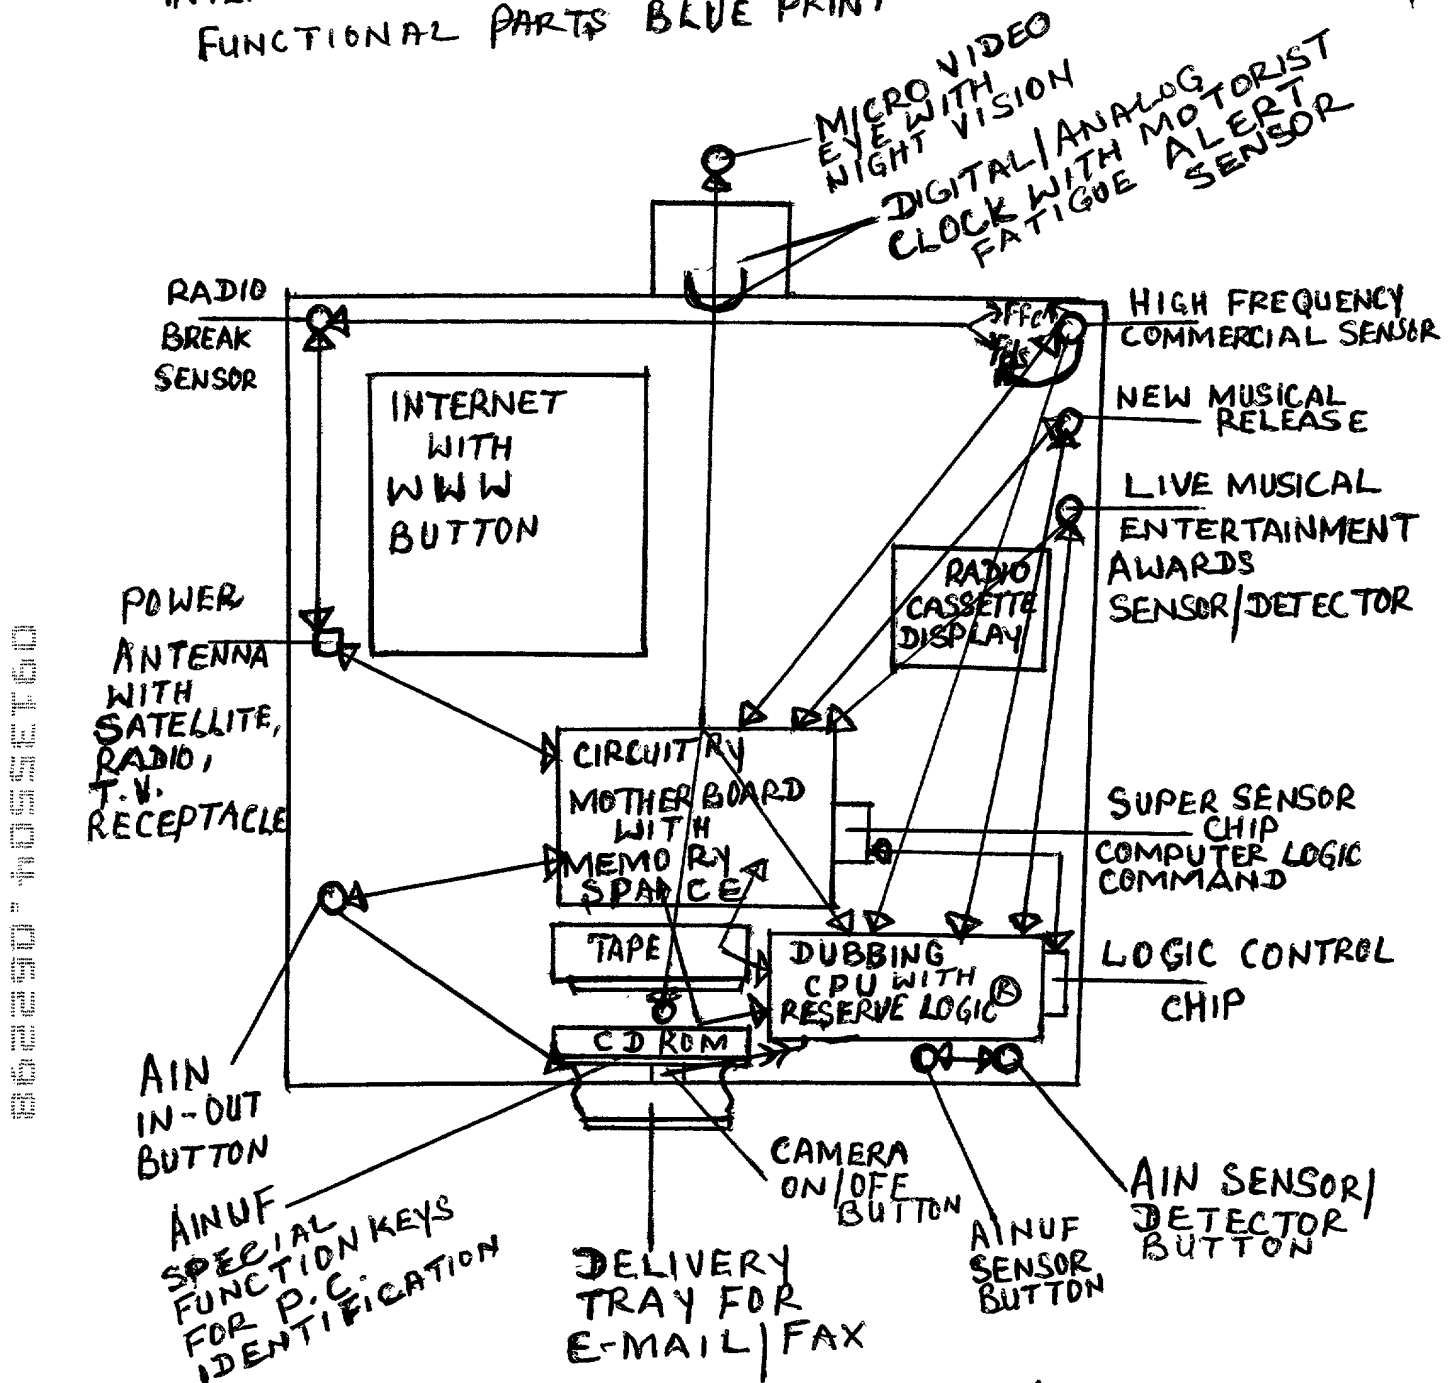 FUNCTIONAL PARTS BLUE PRINT
MICRO VIDEO
EYE WITH
NIGHT VISION
DIGITAL/ANALOG
CLOCK WITH MOTORIST
FATIGUE ALERT
SENSOR
RADIO
BREAK
SENSOR
HIGH FREQUENCY
COMMERCIAL SENSOR
NEW MUSICAL
RELEASE
LIVE MUSICAL
ENTERTAINMENT
AWARDS
SENSOR/DETECTOR
INTERNET
WITH
WWW
BUTTON
RADIO
CASSETTE
DISPLAY
POWER
ANTENNA
WITH
SATELLITE,
RADIO,
T.V.
RECEPTACLE
CIRCUITRY
MOTHER BOARD
WITH
MEMORY
SPACE
SUPER SENSOR
CHIP
COMPUTER LOGIC
COMMAND
TAPE
DUBBING
CPU WITH
RESERVE LOGIC ®
LOGIC CONTROL
CHIP
CD ROM
AIN
IN-OUT
BUTTON
AINUF
SPECIAL
FUNCTION KEYS
FOR P.C.
IDENTIFICATION
CAMERA
ON/OFF
BUTTON
DELIVERY
TRAY FOR
E-MAIL/FAX
AINUF
SENSOR
BUTTON
AIN SENSOR/
DETECTOR
BUTTON